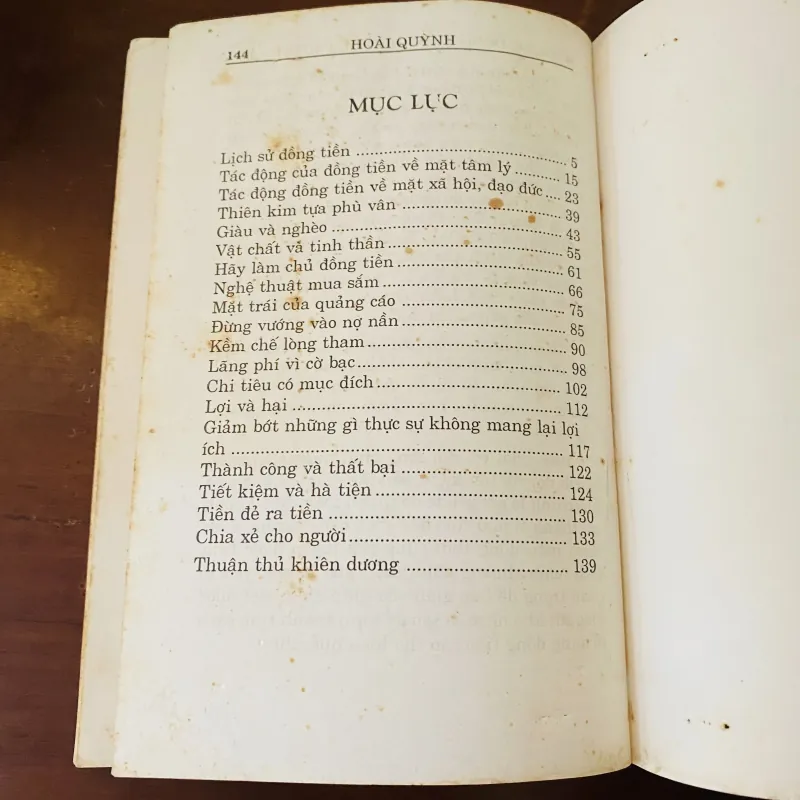 144 HOÀI QUỲNH
MỤC LỤC
Lịch sử đồng tiền ........ 5
Tác động của đồng tiền về mặt tâm lý ........ 15
Tác động đồng tiền về mặt xã hội, đạo đức .... 23
Thiên kim tựa phù vân ........ 39
Giàu và nghèo ........ 43
Vật chất và tinh thần ........ 55
Hãy làm chủ đồng tiền ........ 61
Nghệ thuật mua sắm ........ 66
Mặt trái của quảng cáo ........ 75
Đừng vướng vào nợ nần ........ 85
Kềm chế lòng tham ........ 90
Lãng phí vì cờ bạc ........ 98
Chi tiêu có mục đích ........ 102
Lợi và hại ........ 112
Giảm bớt những gì thực sự không mang lại lợi
ích ........ 117
Thành công và thất bại ........ 122
Tiết kiệm và hà tiện ........ 124
Tiền đẻ ra tiền ........ 130
Chia xẻ cho người ........ 133
Thuận thủ khiên dương ........ 139